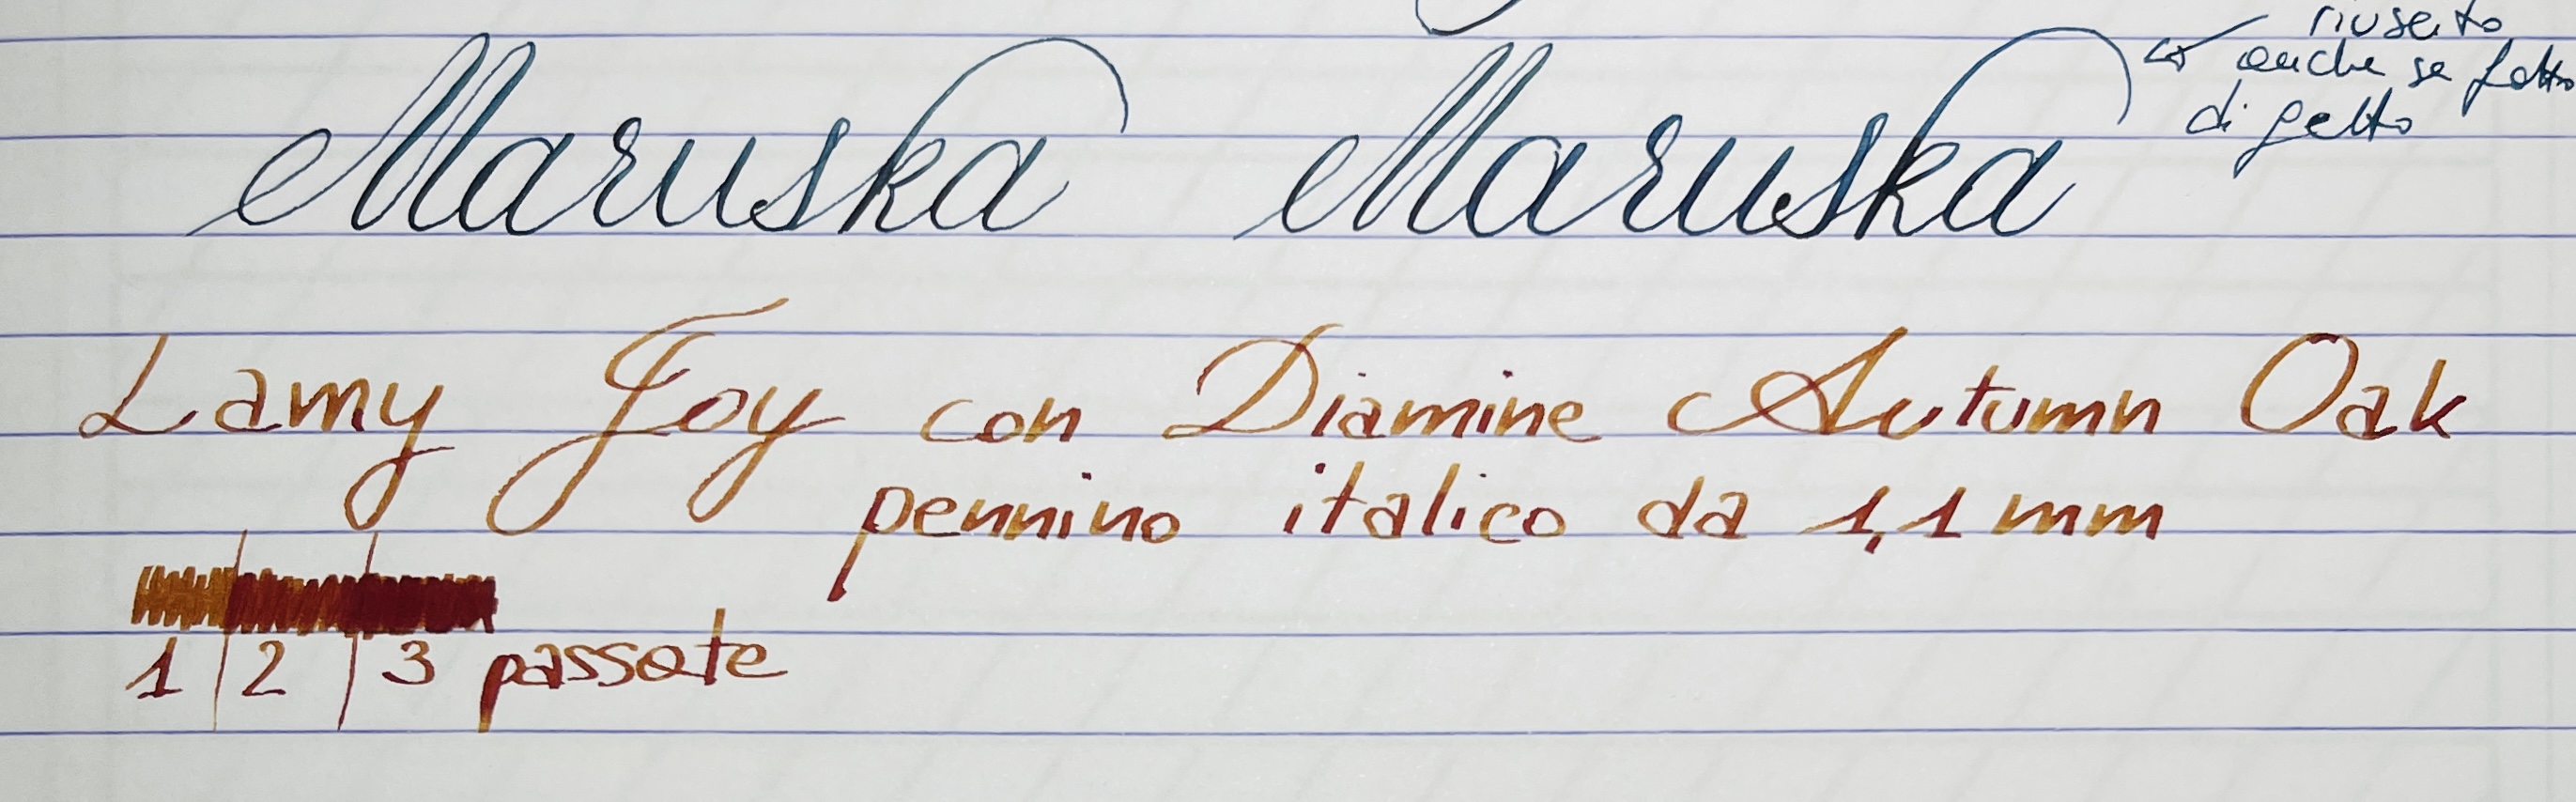 riuscito
anche se fatto
di getto
Maruska Maruska
Lamy Joy con Diamine Autumn Oak
pennino italico da 1,1 mm
1 2 3 passate